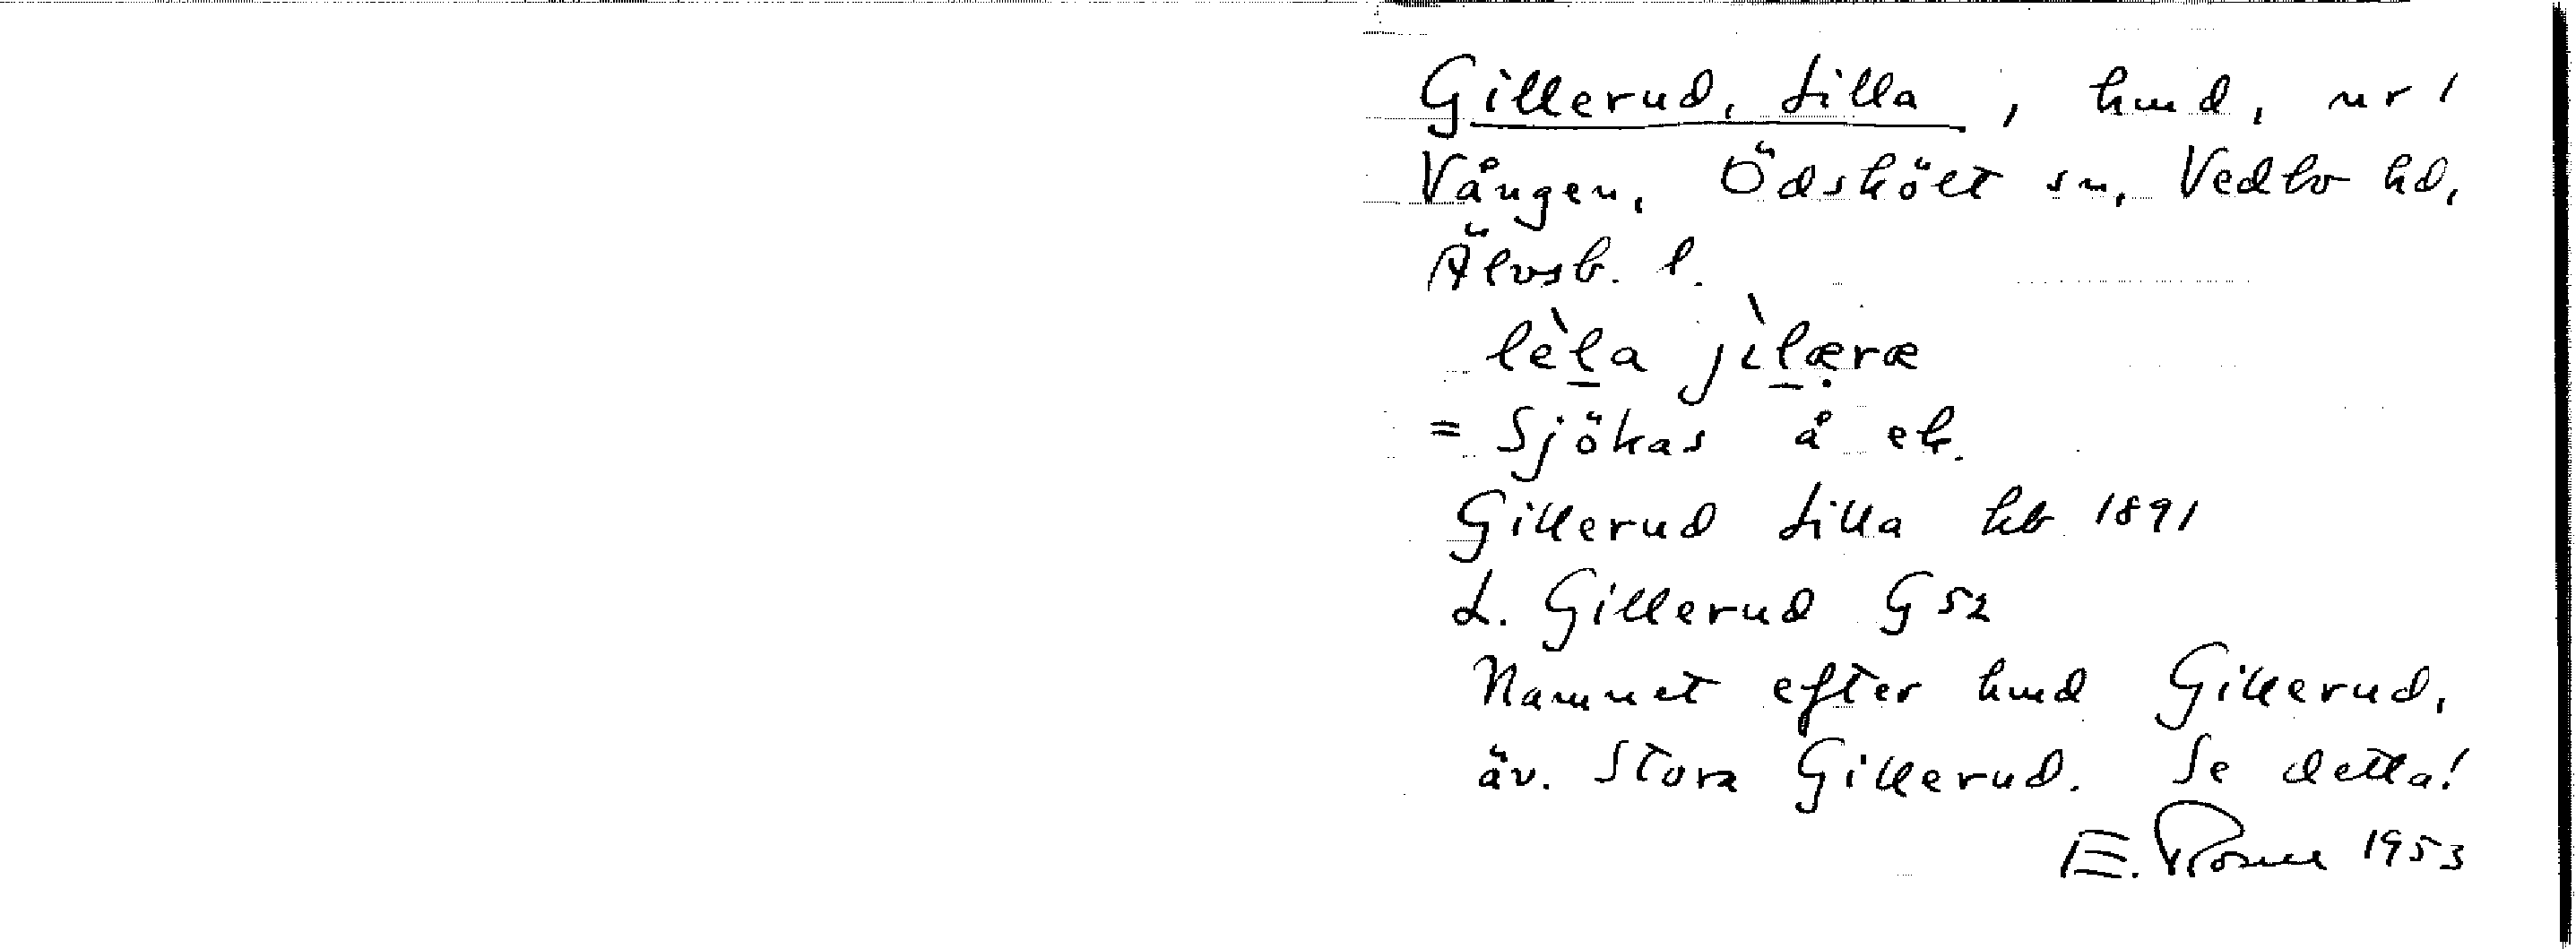 Gillerud, Lilla, hmd, nr 1
Vången, Ödskölt sn, Vedbo hd,
Älvsb. l.
lèla jìlæræ
= Sjökas å ek.
Gillerud Lilla kb 1891
L. Gillerud G 52
Namnet efter hmd Gillerud,
äv. Stora Gillerud. Se detta!
E. Rosne 1953